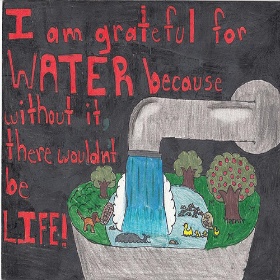 I am grateful for
WATER because
without it,
there wouldn't
be
LIFE!